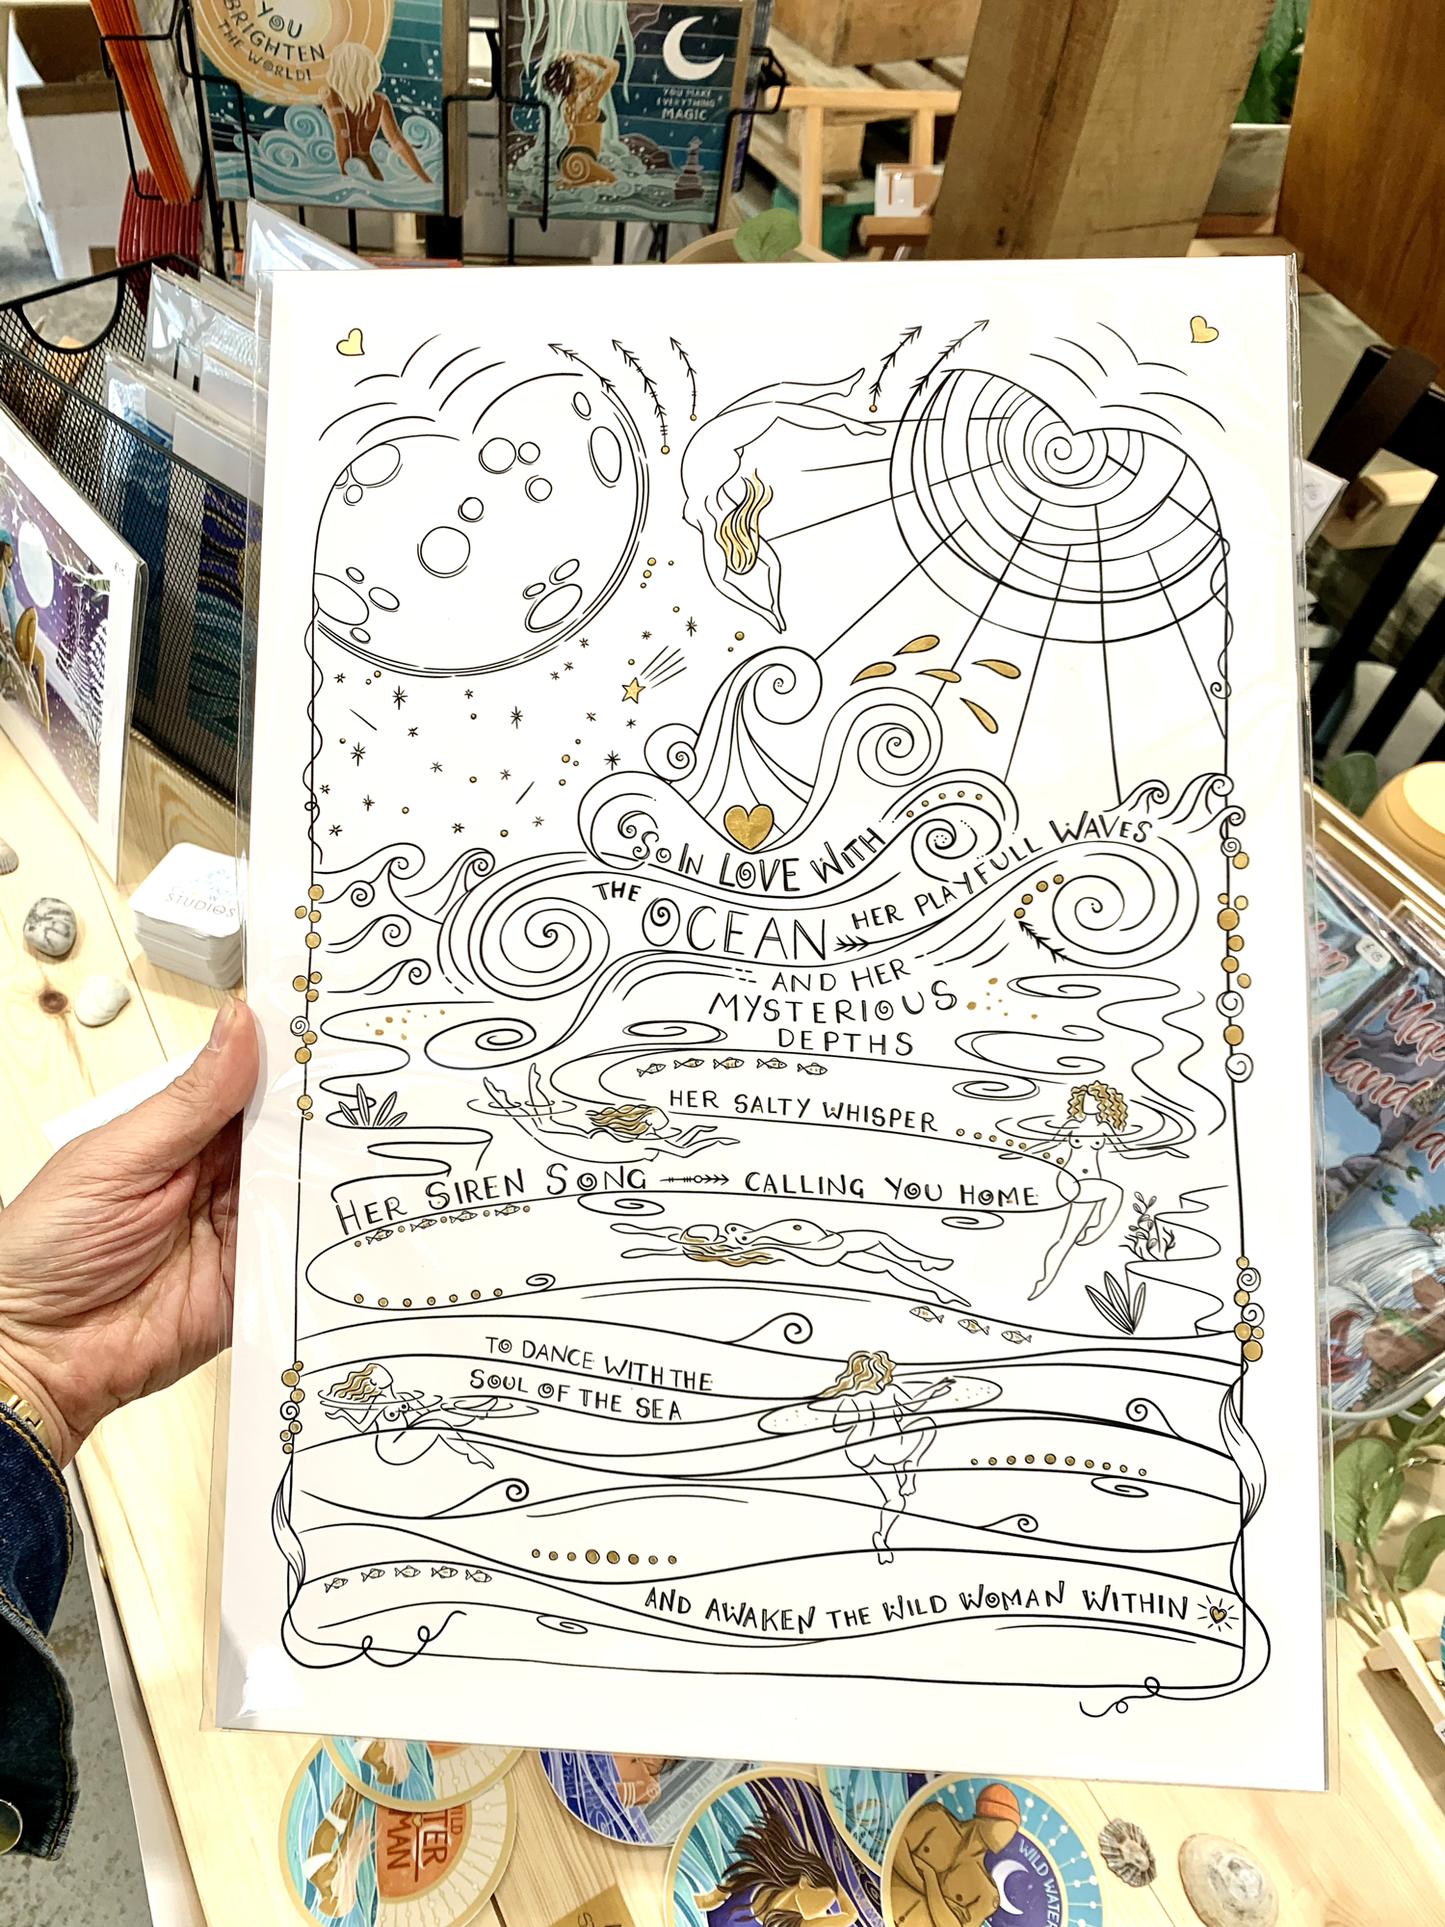 YOU
BRIGHTEN
THE WORLD!
YOU MAKE
EVERYTHING
MAGIC
So IN LOVE WITH
THE OCEAN HER PLAYFULL WAVES
AND HER
MYSTERIOUS
DEPTHS
HER SALTY WHISPER
HER SIREN SONG CALLING YOU HOME
TO DANCE WITH THE
SOUL OF THE SEA
AND AWAKEN THE WILD WOMAN WITHIN
STUDIOS
WILD